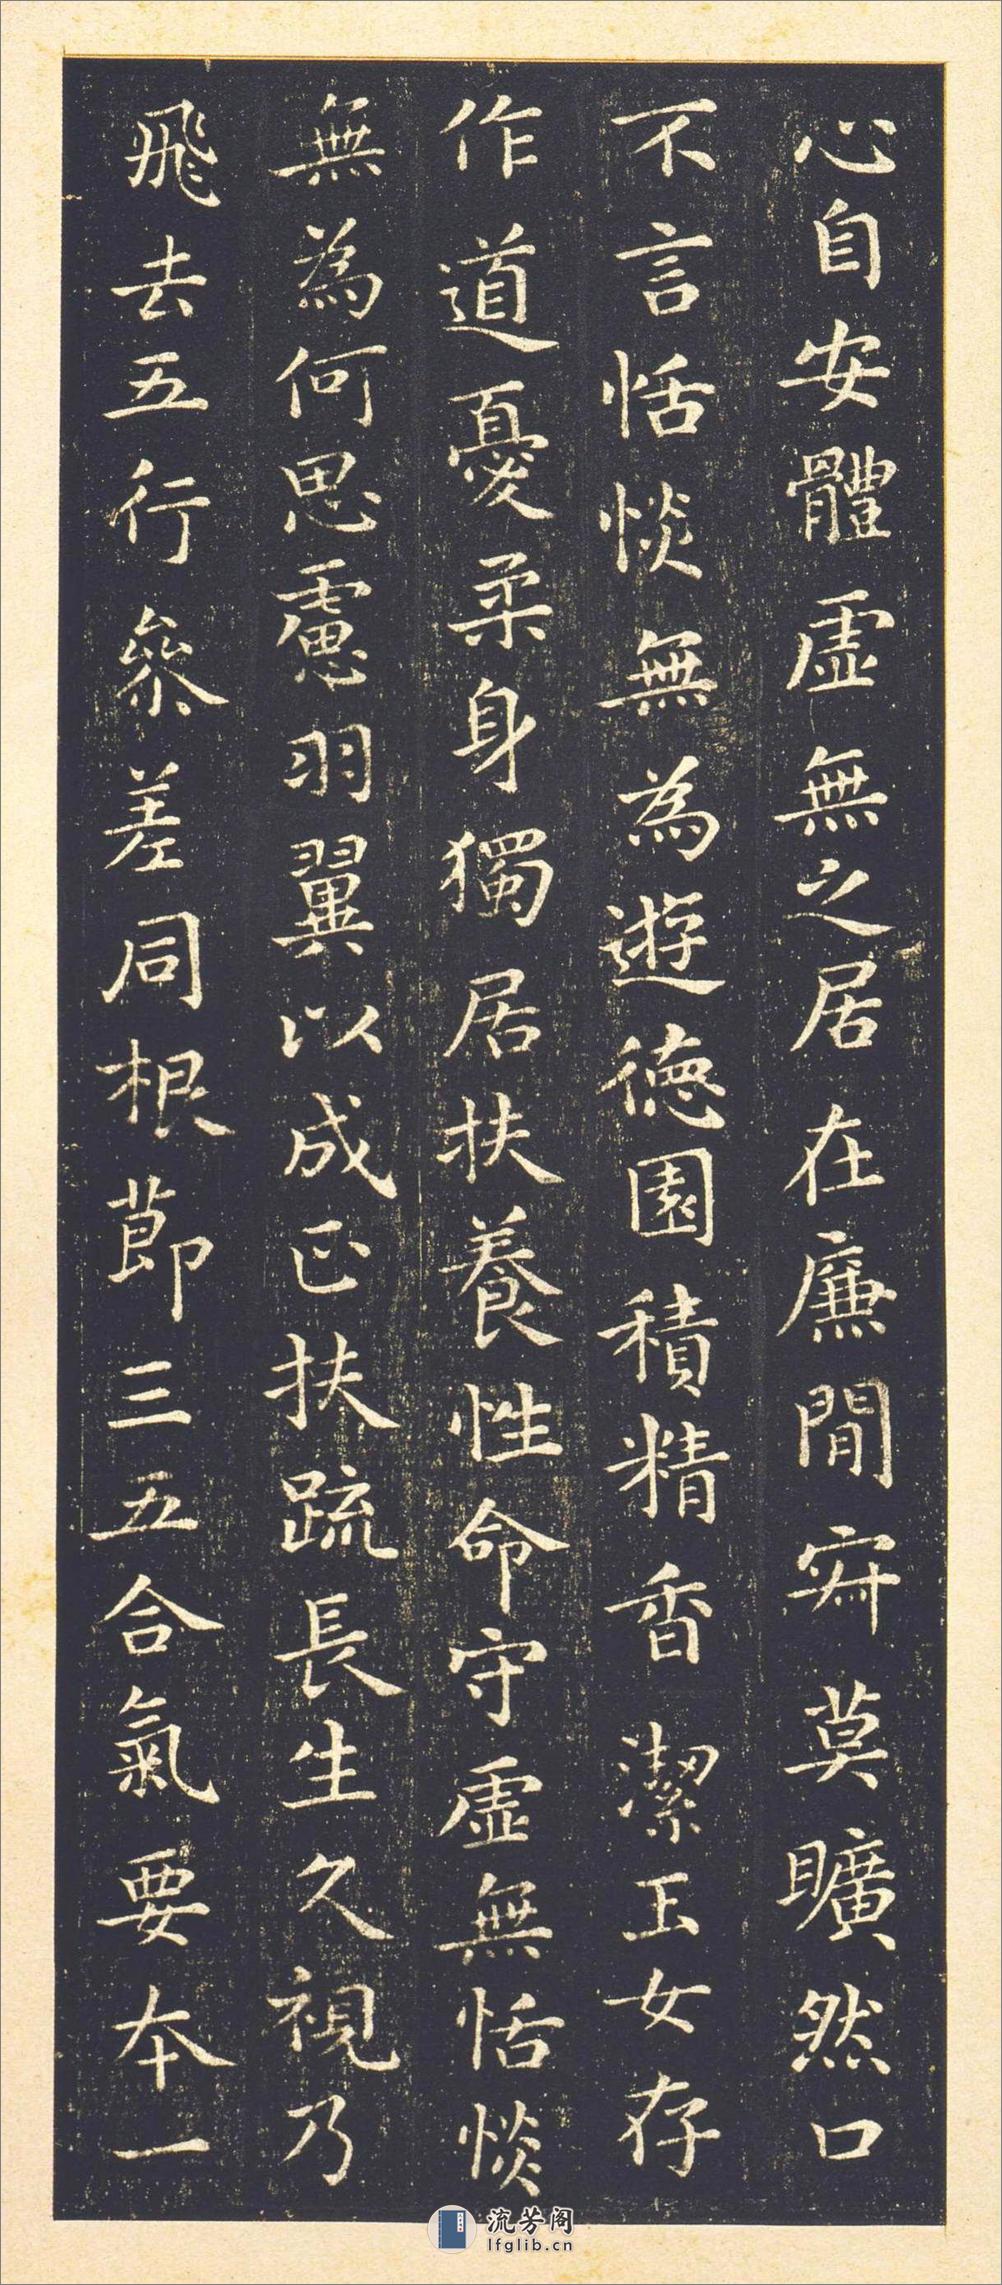 心自安體虛無之居在廉間寂莫曠然口
不言恬惔無為遊德園積精香潔玉女存
作道憂柔身獨居扶養性命守虛無恬惔
無為何思慮羽翼以成正扶疏長生久視乃
飛去五行參差同根莭三五合氣要本一
流芳阁
lfglib.cn